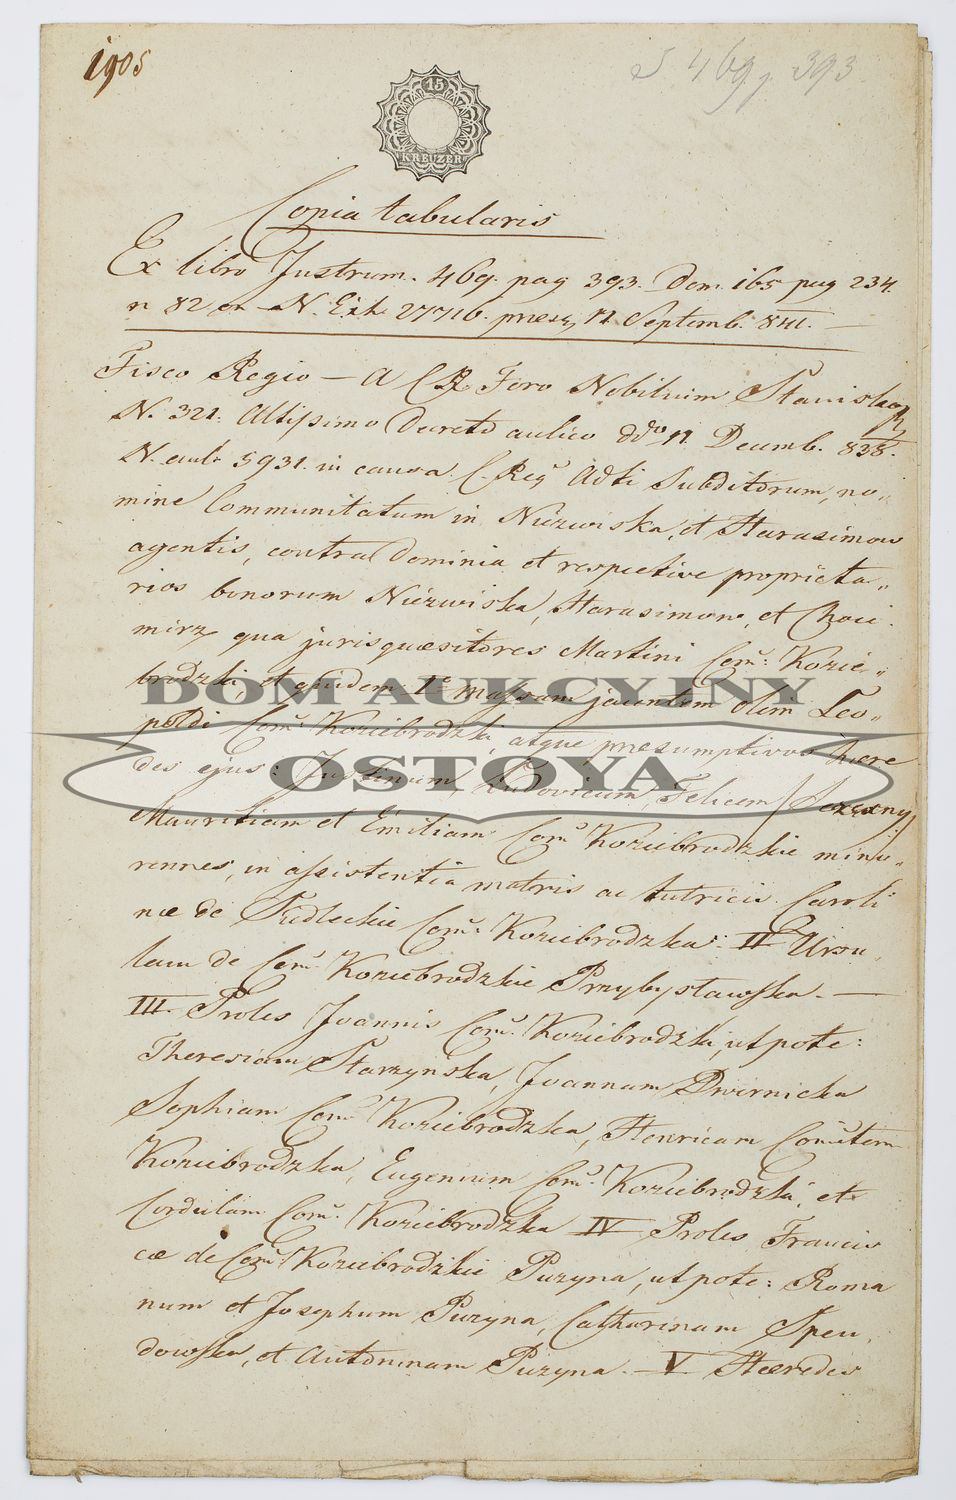 1905
S 469 p 393
15
KREUZER
Copia tabularis
Ex libro Instrum. 469. pag 393. Dom. 165 pag 234.
n 82 on N. Exh. 27716. praes. 17 Septemb. 841. —
Fisco Regio — A C R Foro Nobilium Stanislao,,
N. 321. Altissimo Decreto aulico ddo 17 Decemb. 838.
N. aul. 5931. in causa C. Reg. Adti Subditorum, no,,
mine Communitatum in Niezwiska, et Harasimow
agentis, contra Dominia et respective proprieta,,
rios bonorum Niezwiska, Harasimow, et Choci,
mirz qua jurisquaesitores Martini Com: Kozie,,
brodzki et quidem I° massam jacentem olim Leo,,
poldi Com: Koziebrodzki, atque praesumptivos haere
des ejus: Justinum, Ludovicum, Felicem / Szczęsny /
Mauritium et Emiliam Com: Koziebrodzkie mino,,
rennes, in assistentia matris ac tutricis Caroli
nae de Siedleckie Com: Koziebrodzka: II Ursu,
lam de Com: Koziebrodzkie Przybysławska. —
III. Proles Joannis Com: Koziebrodzki, utpote:
Theresiam Starzyńska, Joannam Dwernicka
Sophiam Com: Koziebrodzka, Henricum Comitem
Koziebrodzka, Eugenium Com: Koziebrodzki, et
Cordulam Com: Koziebrodzka IV Proles Francis
cae de Com: Koziebrodzkie Puzyna, utpote: Roma
num et Josephum Puzyna, Catharinam Spen,
dowska, et Antoninam Puzyna. — V. Haeredes
DOM AUKCYJNY
OSTOYA